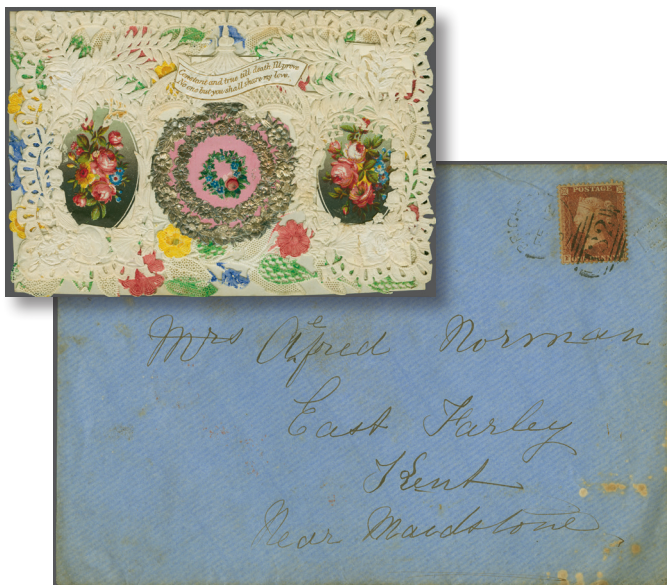 Constant and true till death I'll prove
No one but you shall share my love.
POSTAGE
Mrs Alfred Norman
East Farley
Kent
Near Maidstone